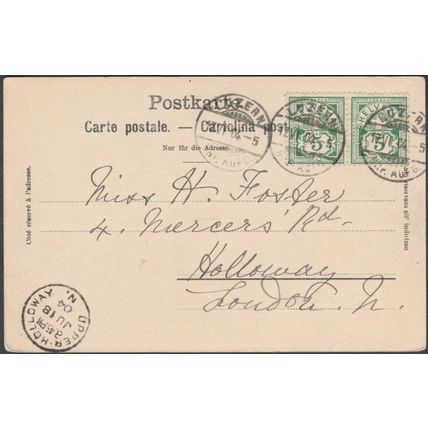 Postkarte.
Carte postale. — Cartolina postale
Nur für die Adresse.
Côté réservé à l'adresse.
riservato all' indirizzo
HELVETIA
5
5
LUZERN
LUZERN
LUZERN
Miss H. Foster
4. Mercers' Rd.
Holloway
London. N.
UPPER-HOLLOWAY N.
3.45PM
JU 18
04